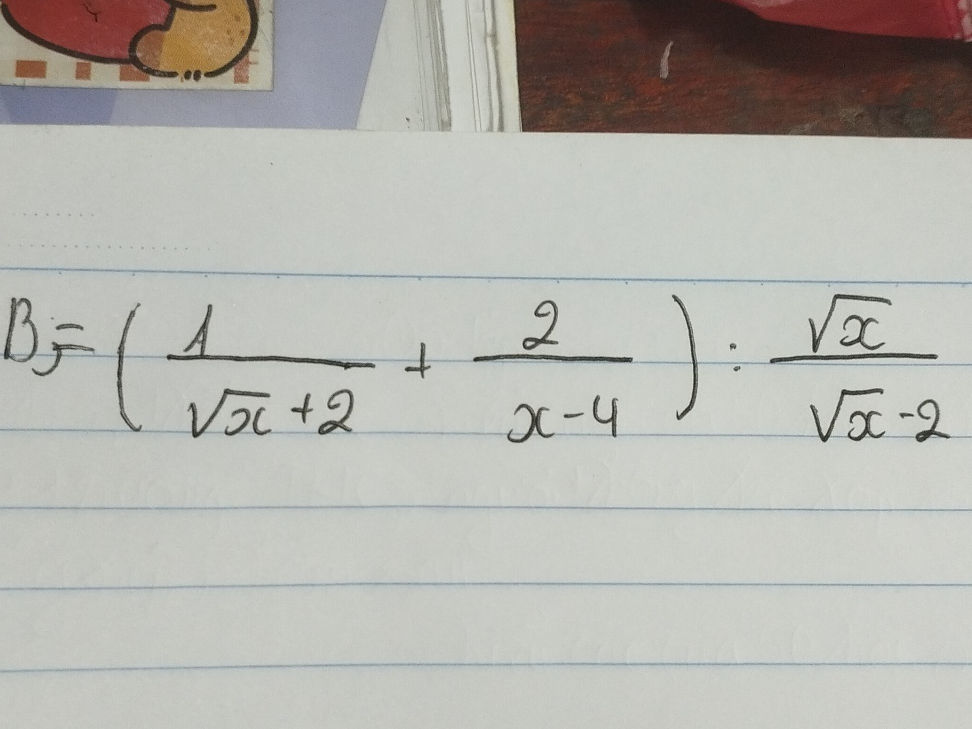 B = ( 1/(√x + 2) + 2/(x - 4) ) : √x/(√x - 2)